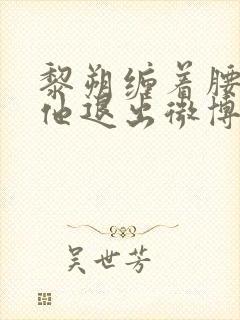 黎朔缠着腰
他退出微博
吴世芳